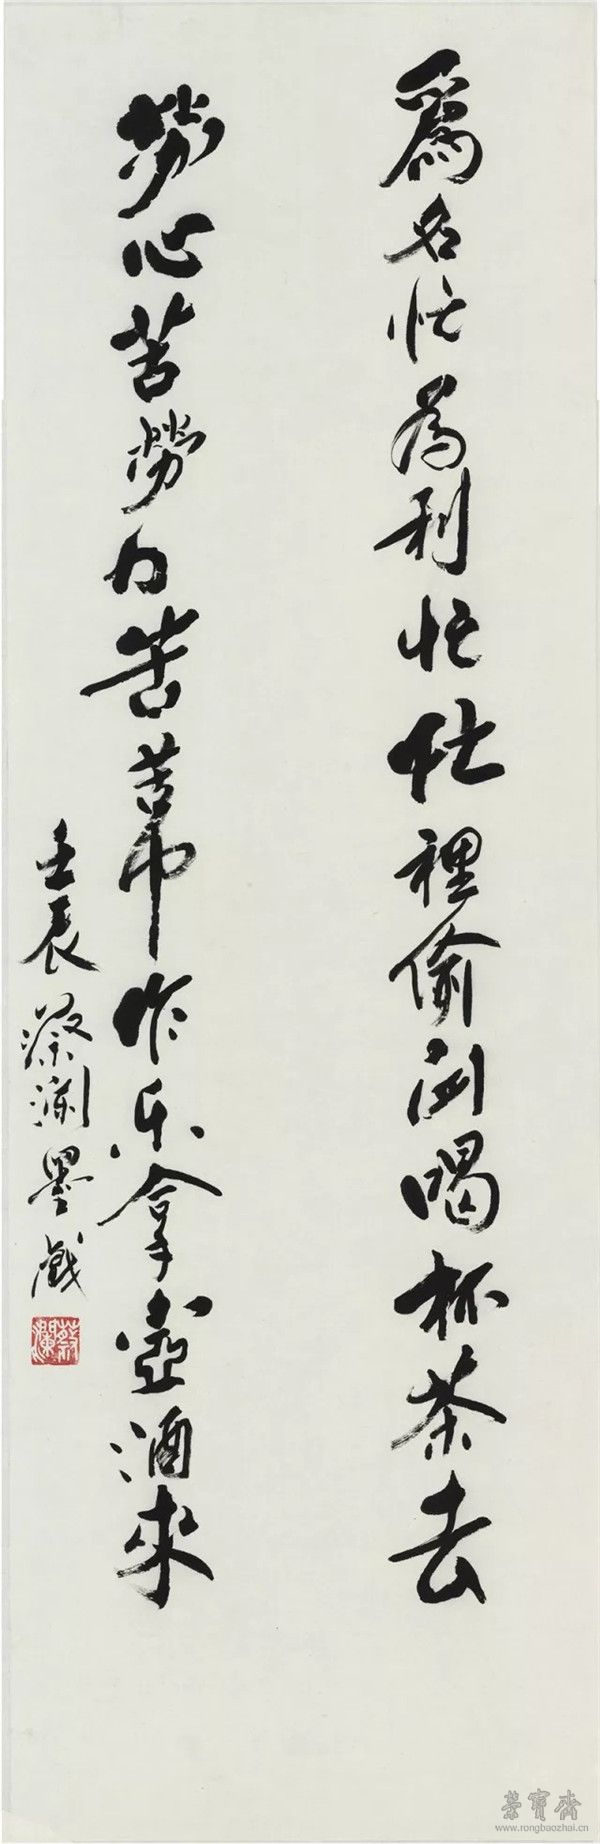 爲名忙為利忙忙裡偷闲喝杯茶去
勞心苦勞力苦苦中作乐拿壺酒來
壬辰蔡瀾墨戲
蔡瀾
榮寶齋
www.rongbaozhai.cn